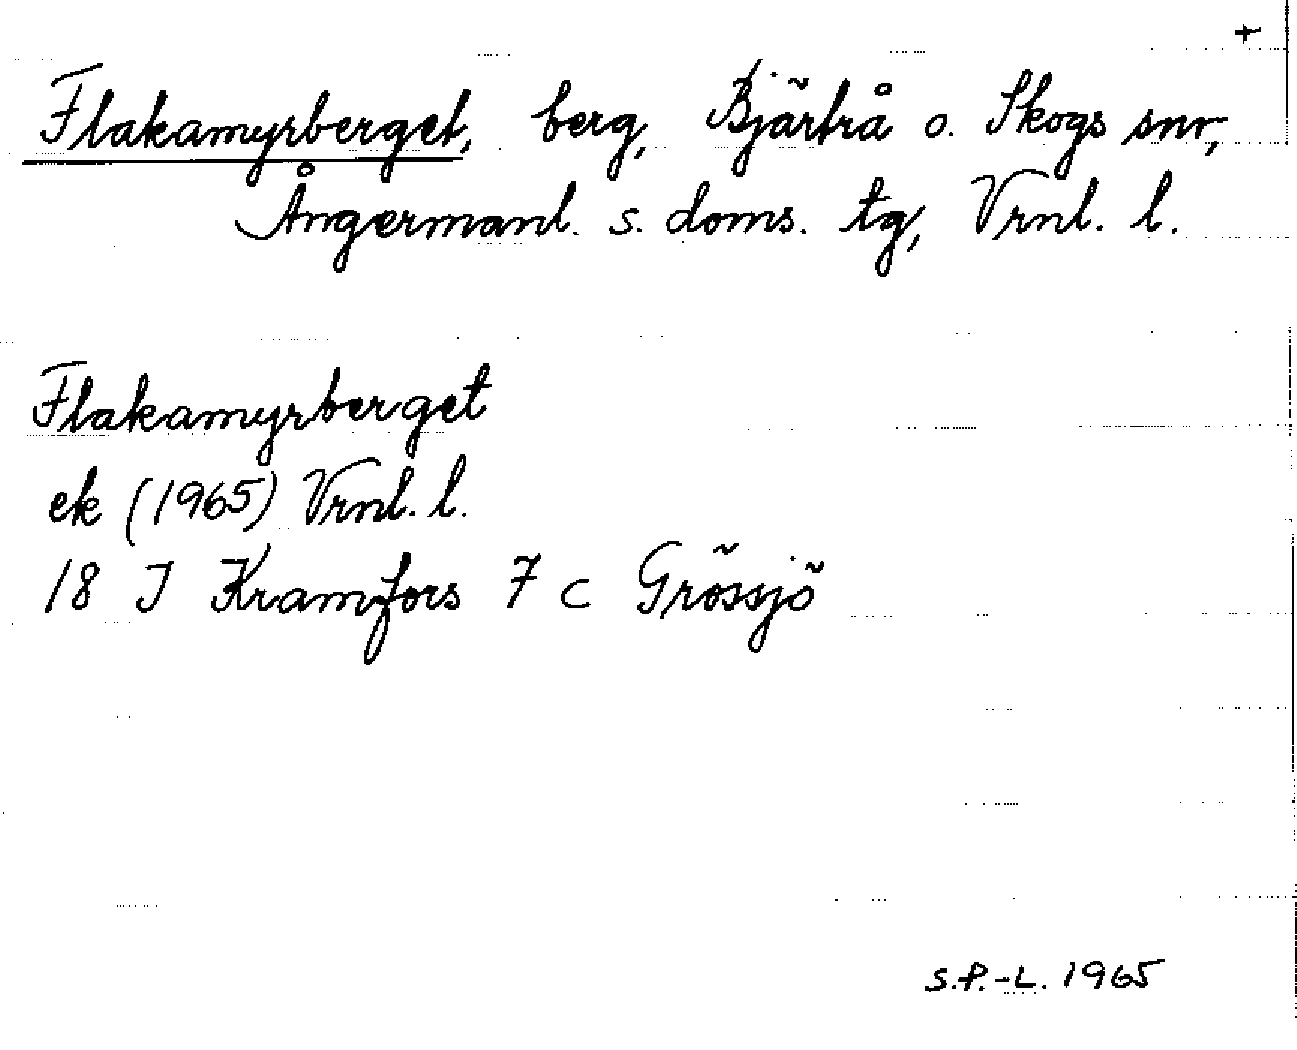 +
Flakamyrberget, berg, Bjärtrå o. Skogs snr,
Ångermanl. s. doms. tg, Vrnl. l.
Flakamyrberget
ek (1965) Vrnl. l.
18 J Kramfors 7 c Grössjö
S.P.-L. 1965